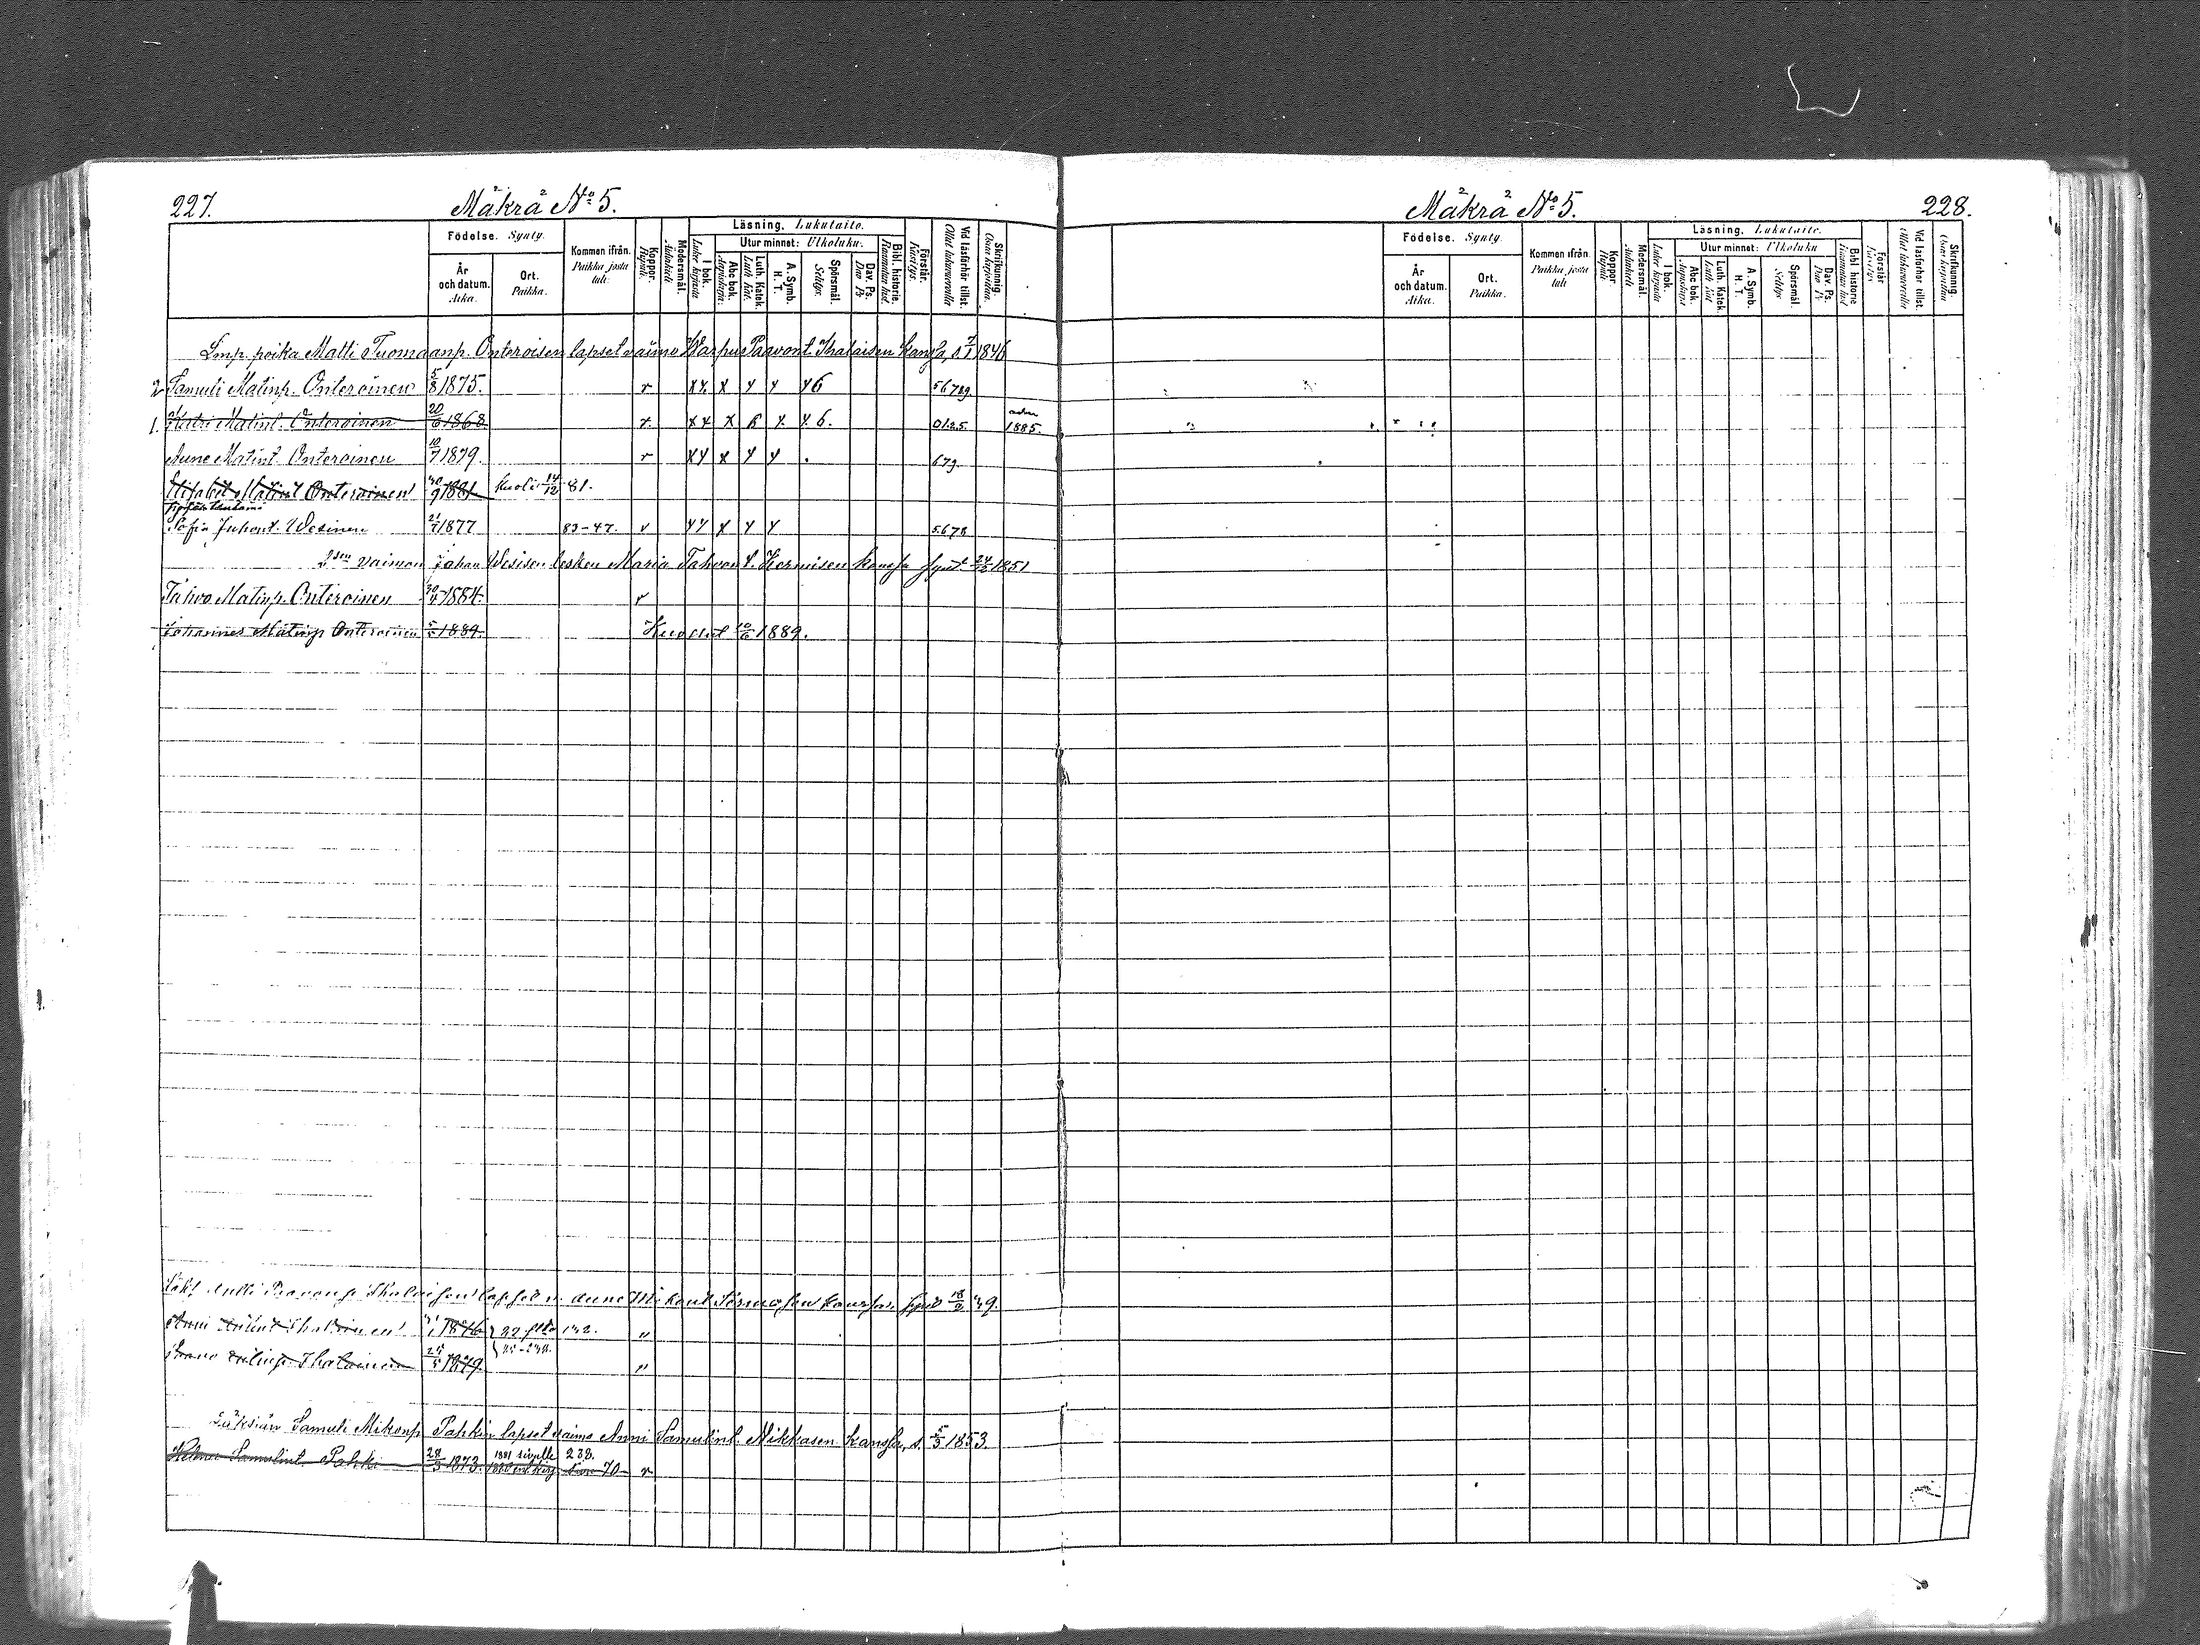 227. Mäkrä No 5.
Födelse. Synty.
År och datum. Aika.
Ort. Paikka.
Kommen ifrån. Paikka josta tuli.
Koppor. Rupuli.
Modersmål. Äidinkieli
Läsning. Lukutaito.
I bok. Lukee kirjasta
Utur minnet: Ulkoluku.
Abc bok. Aapiskirja.
Luth. Katek. Luth. Kat.
A. Symb. H. T.
Spörsmål. Selitys.
Dav. Ps. Dav. Ps.
Bibl. historie. Raamatun hist.
Förstår. Käsitys.
Vid läsförhör tillst. Ollut lukuvuoroilla
Skrifkunnig. Osaa kirjoittaa.
Lmp. poika Matti Tuomaanp. Onteroisen lapset vaimo Warpu Paavont. Ihalaisen kansfa, s. 7/1 1846
2 Samuli Matinp. Onteroinen 5/8 1875. r x x x x x x 6 56789.
1. Katri Matint. Onteroinen 20/6 1868 r. x x x 6 x. x 6. 0125 1885.
Anne Matint. Onteroinen 10/7 1879. r x x x x x . 679.
Elisabet Matint Onteroinen 1881 Kuoli 14/12 81.
Sofia Juhont. Wesinen 21/7 1877 83-47. v x x x x x 5678
2sen vaimon Johan Wesisen lesken Maria Tahvont. Hermisen kansfa synt. 1851
Tahvo Matinp. Onteroinen 1884. r
Johannes Matinp Onteroinen 5/5 1889. Kuollut 10/6 1889.
Ihalaisen lapset v. Anne Mikont Sormusen kansfa. synt 18/2 49.
Anni Antint Ihalainen 1876 22 132. "
Paavo Antinp. Ihalainen 25/5 1879. "
Läksiän Samuli Mikonp Pahkin lapset vaimo Anni Samulint. Nikkasen kansfa, s. 5/3 1853.
Helena Samulint Pahki 28/3 1873. 1881 sivulle 238. 70 r
Mäkrä No 5. 228.
Födelse. Synty.
År och datum. Aika.
Ort. Paikka.
Kommen ifrån. Paikka josta tuli
Koppor. Rupuli
Modersmål. Äidinkieli
Läsning. Lukutaito.
I bok. Lukee kirjasta
Utur minnet: Ulkoluku
Abc bok. Aapiskirja
Luth. Katek. Luth Kat
A. Symb. H. T.
Spörsmål. Selitys
Dav. Ps. Dav Ps
Bibl historie Raamatun hist
Förstår Käsitys
Vid läsförhör tillst. Ollut lukuvuoroilla
Skrifkunnig. Osaa kirjoittaa